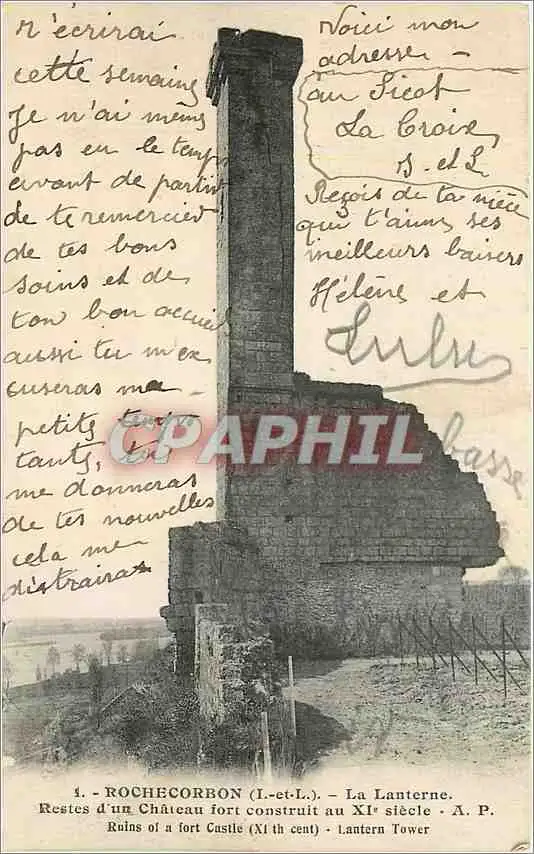 n'écrirai
cette semaine
Je n'ai même
pas eu le temps
avant de partir
de te remercier
de tes bons
soins et de
ton bon accueil
aussi tu m'ex
cuseras ma
petite tante
tante,
me donneras
de tes nouvelles
cela me
distraira
Voici mon
adresse -
au Sicot
La Croix
I. et L.
Reçois de ta nièce
qui t'aime ses
meilleurs baisers
Hélène et
Lulu
basse
CPAPHIL
1. - ROCHECORBON (I.-et-L.). - La Lanterne.
Restes d'un Château fort construit au XIe siècle - A. P.
Ruins of a fort Castle (XI th cent) - Lantern Tower